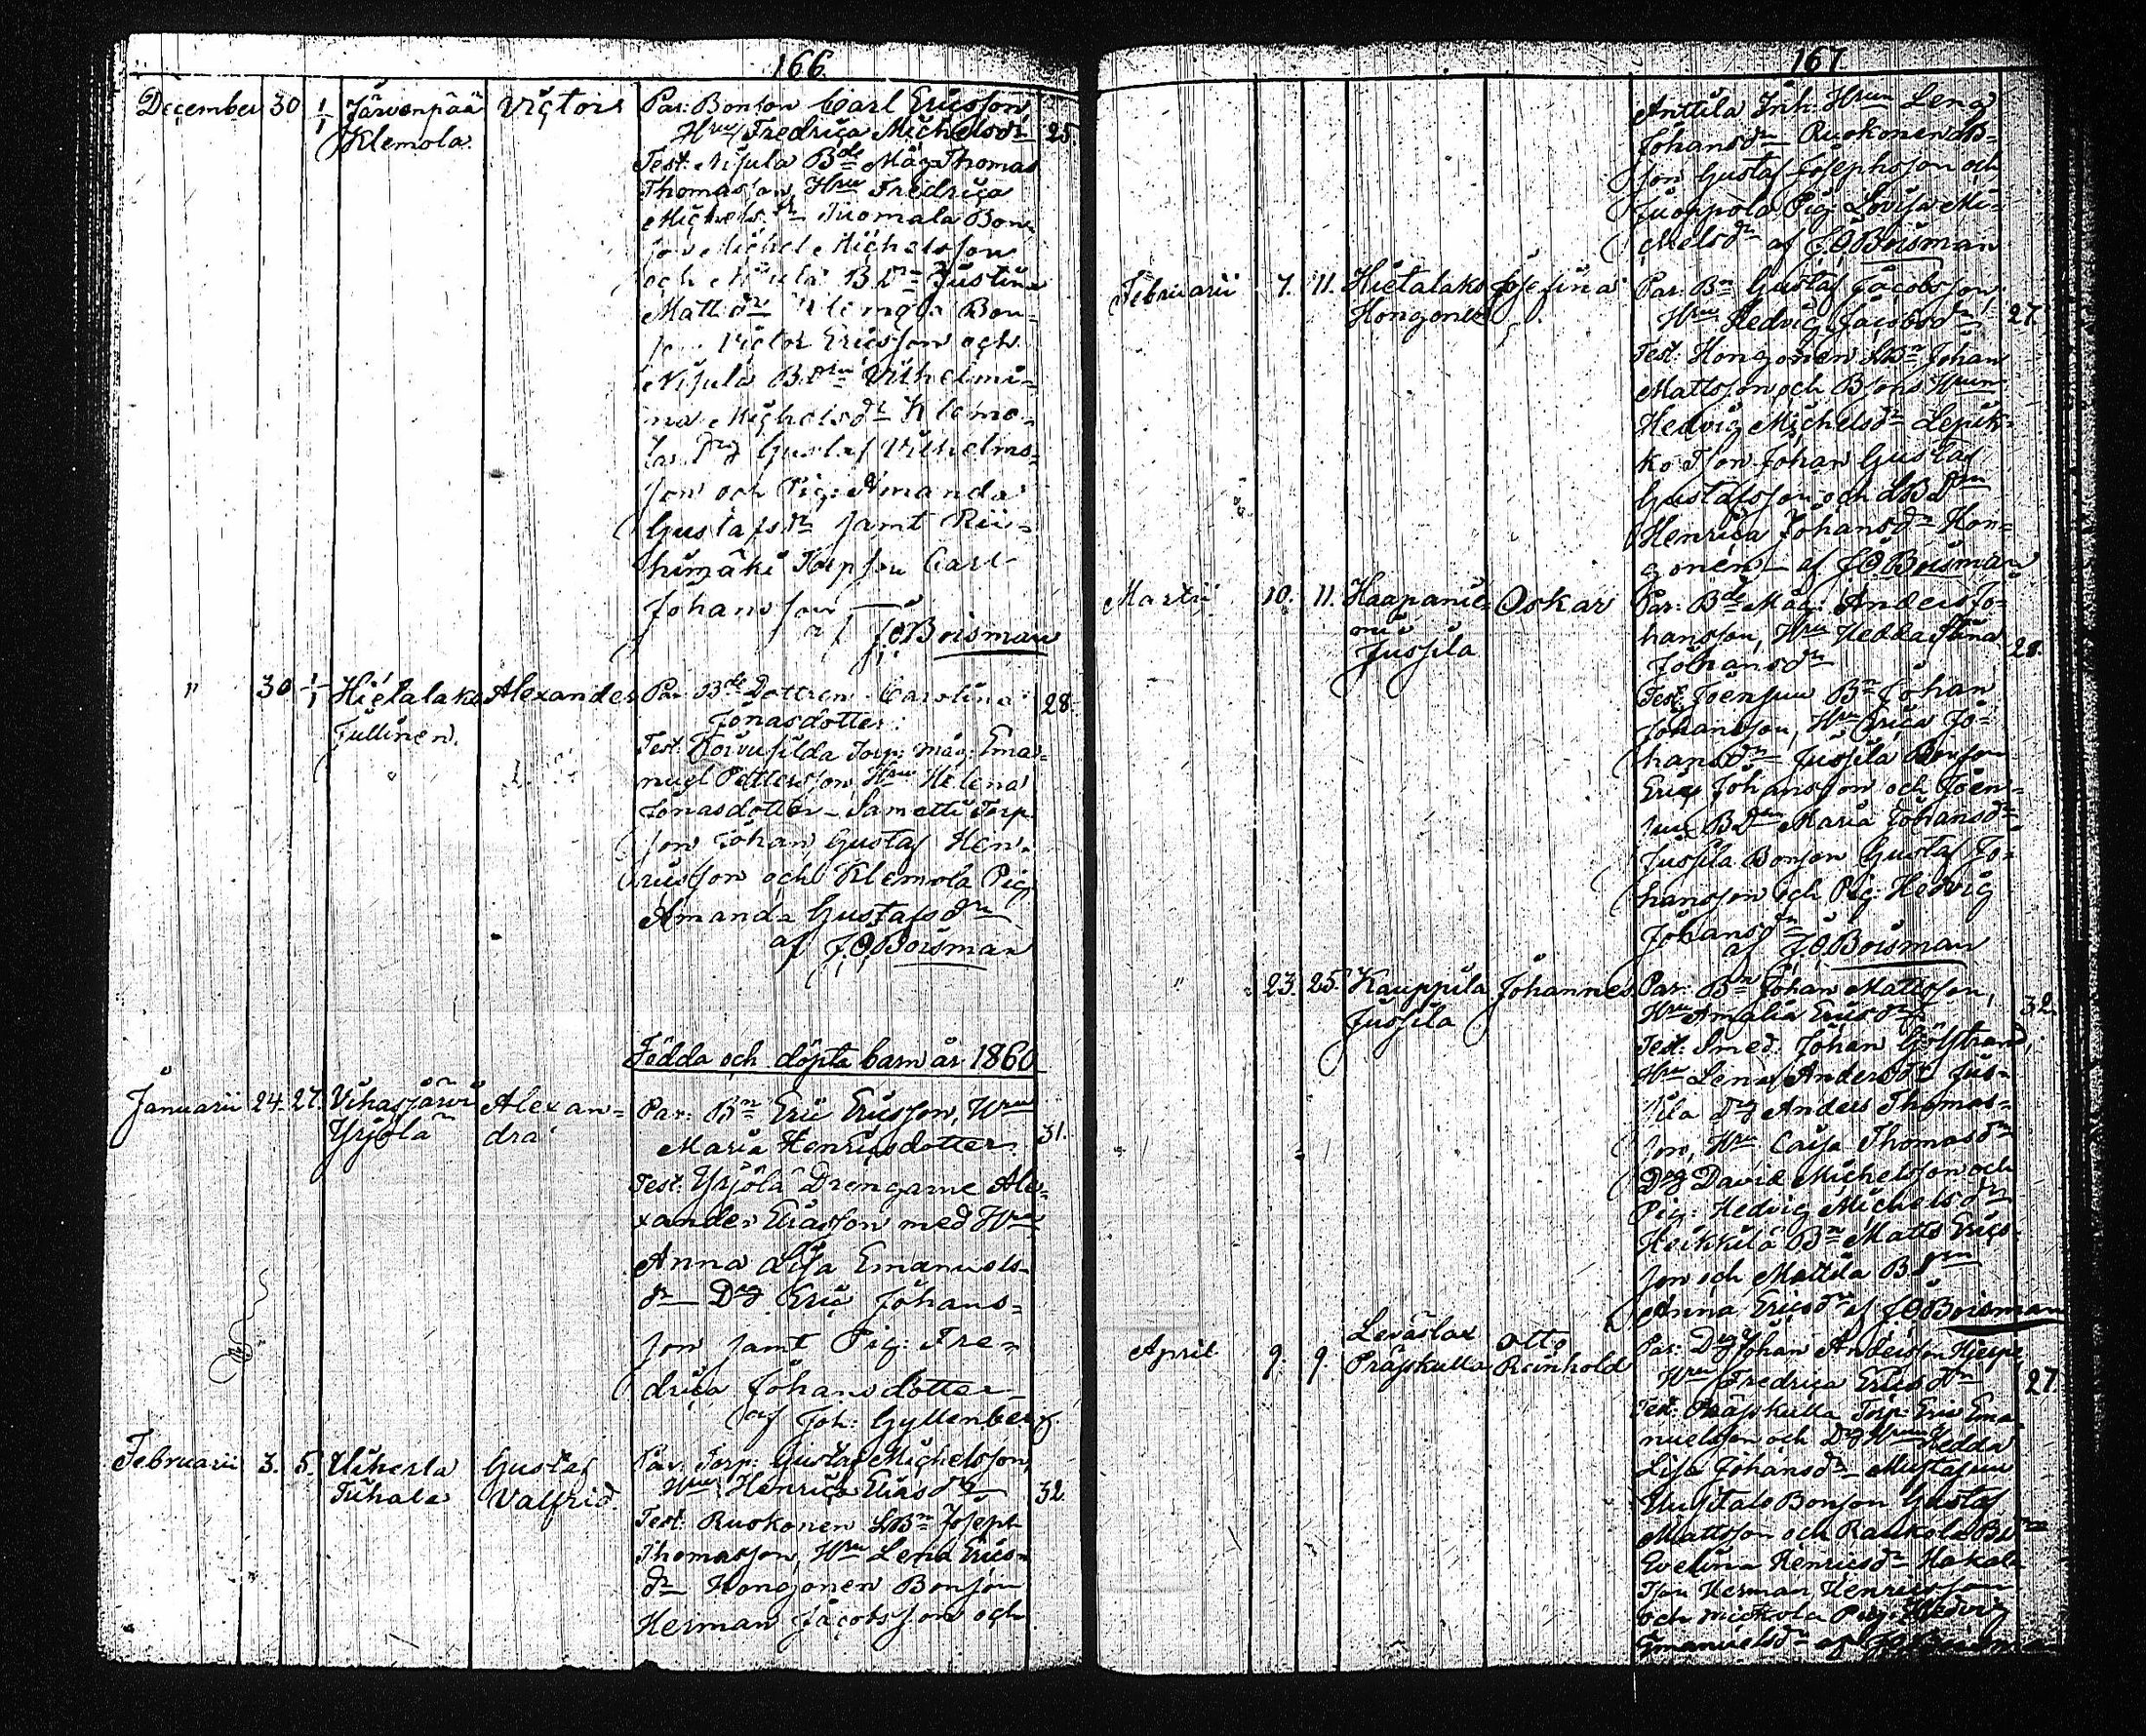 166
December 30 1/1 Järvenpää Victor Par: Bonson Carl Ericsson,
Klemola. Hru Fredrica Michelsdr 25.
Test: Nisula Bde Måg Thomas
Thomasson, Hru Fredrica
Michelsdr Tuomala Bon-
son Michel Michelsson
och Nisula BDr Justina
Mattsdr Klemola Bon-
son Victor Ericsson och
Nisula BDtru Vilhelmi-
na Michelsdr Klemo-
las Drg Gustaf Vilhelms-
son och Pig: Amanda
Gustafsdr samt Rii-
himäki Torpson Carl
Johansson
af J.O.Boisman
" 30 1/1 Hietalaks Alexander Par: Bde Dottren Carolina 28.
Tullinen. Jonasdotter.
Test: Koivusilda Torp: måg: Ema-
nuel Pettersson Hru Helena
Jonasdotter Sametti Torp
son Johan Gustaf Hen-
ricsson och Klemola Pig
Amanda Gustafsdr
af J.O.Boisman
Födda och döpta barn år 1860
Januarii 24. 27. Vihasjärvi Alexan- Par: Bn Eric Ericsson, Hru
Yrjölä dra Maria Henricsdotter. 31.
Test: Yrjölä Drengarne Ale-
xander Eliasson med Hru
Anna Lisa Emanuels-
dr Drg Eric Johans-
son samt Pig: Fre-
drica Johansdotter
af Joh: Gyllenberg.
Februarii 3. 5. Uiherla Gustaf Par: Torp: Gustaf Michelsson,
Tuhala Valfrid. Hru Henrica Eliasdr 32.
Test: Ruokonen LBn Joseph
Thomasson, Hru Lena Erics-
dr Hongonen Bonson
Herman Jacobsson och
167
Anttila Inh. Hrun Lena
Johansdr Ruokonen B-
son Gustaf Josephsson och
Juoppola Pig: Lovisa Mi-
chelsdr af J.O.Boisman
Februarii 7. 11. Hietalaks Josefina Par: Bn Gustaf Jacobsson,
Hongonen Hru Hedvig Jacobsdr 27.
Test: Hongonen LBn Johan
Mattsson och Bsons Hrun
Hedvig Michelsdr Lepik-
ko Tson Johan Gustaf
Gustafsson och LBDtrn
Henrica Johansdr Hon-
gonen af J.O.Boisman
Martii 10. 11. Haapanie- Oskar Par: Bde Måg: Anders Jo-
mi hansson, Hru Hedda Stina 28.
Jussila Johansdr
Test: Joensuu Bn Johan
Johansson, Hru Erica Jo-
hansdr Jussila Bonson
Eric Johansson och Joen-
suu BDtrn Maria Johansdr
Jussila Bonson Gustaf Jo-
hansson och Pig: Hedvig
Johansdr
af J.O.Boisman
" 23. 25. Kauppila Johannes Par: Bn Johan Mattsson,
Jussila Hru Amalia Ericsdr 32.
Test: Smed. Johan
Hru Lena Andersdr Jus-
sila Drg Anders Thomas-
son, Hru Caisa Thomasdr
Drg David Michelsson och
Pig: Hedvig Michelsdr
Heikkilä Bn Matts Erics-
son och Mattila BDtrn
Anna Ericsdr af J.O.Boisman
April 9. 9. Leväslax Otto Par: Drg Johan Andersson Hjerpe,
Präskulla Reinhold Hru Fredrica Ericsdr 27.
Test: Präskulla Torp: Eric Ema-
nuelsson och Drg Hrun Hedda
Lisa Johansdr Mustasuu
Uusitalo Bonson Gustaf
Mattsson och Raukola BDtrn
Evelina Henricsdr Hakala
Tson Herman Henricsson
och Pig: Hedvig
Emanuelsdr af J.O.Boisman